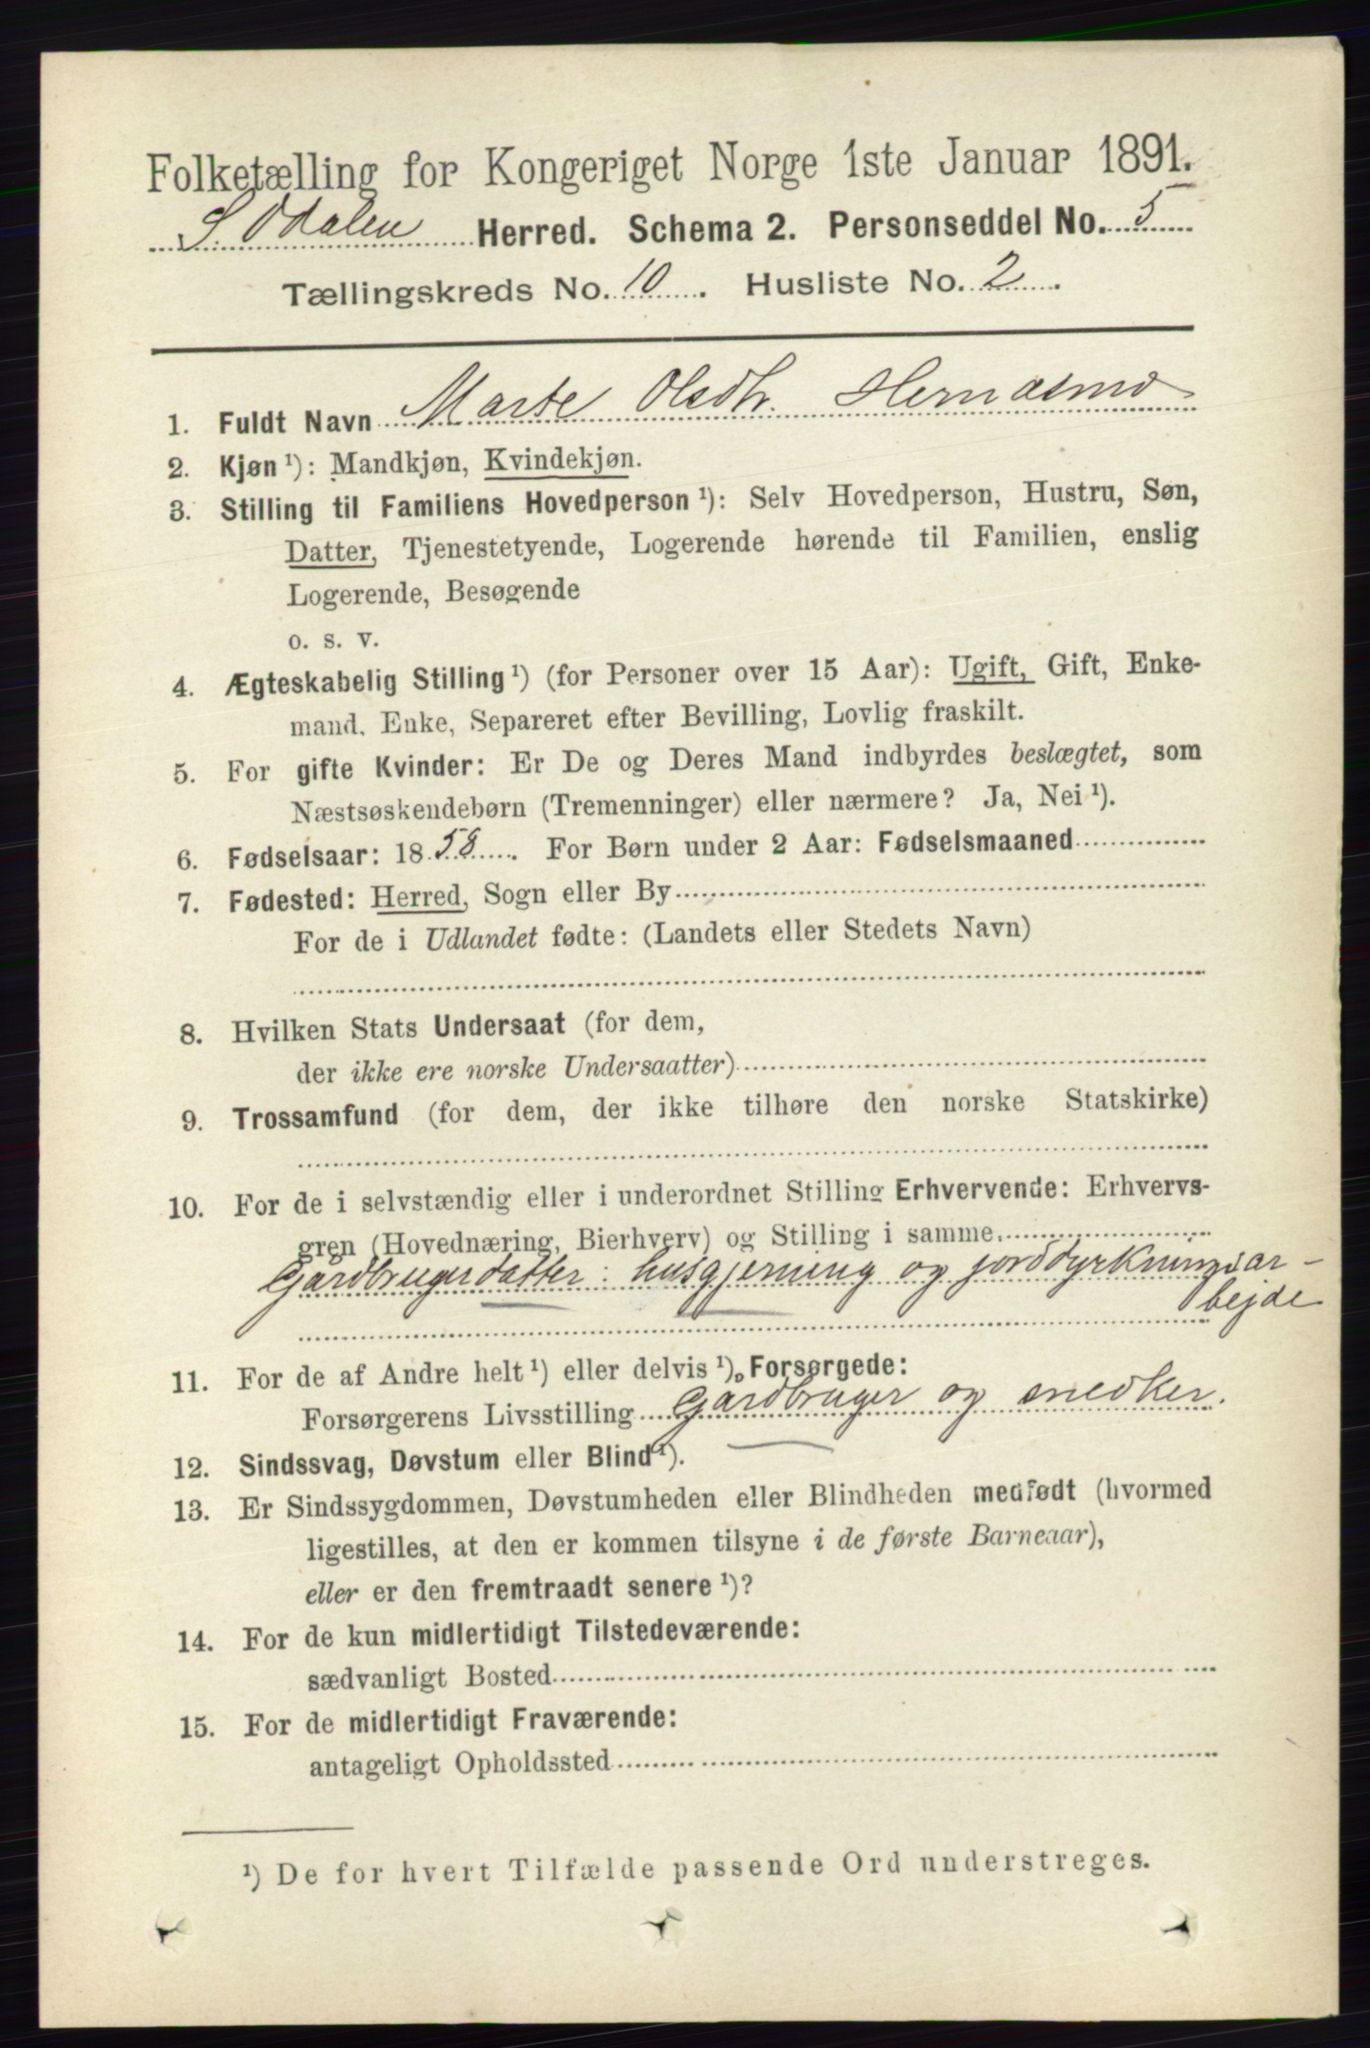 Folketælling for Kongeriget Norge 1ste Januar 1891.
S. Odalen Herred. Schema 2. Personseddel No. 5
Tællingskreds No. 10. Husliste No. 2.
1. Fuldt Navn Marte Olsdtr. Hernæsmo
2. Kjøn ¹): Mandkjøn, Kvindekjøn.
3. Stilling til Familiens Hovedperson ¹): Selv Hovedperson, Hustru, Søn,
Datter, Tjenestetyende, Logerende hørende til Familien, enslig
Logerende, Besøgende
o. s. v.
4. Ægteskabelig Stilling ¹) (for Personer over 15 Aar): Ugift, Gift, Enke-
mand, Enke, Separeret efter Bevilling, Lovlig fraskilt.
5. For gifte Kvinder: Er De og Deres Mand indbyrdes beslægtet, som
Næstsøskendebørn (Tremenninger) eller nærmere? Ja, Nei ¹).
6. Fødselsaar: 1858. For Børn under 2 Aar: Fødselsmaaned
7. Fødested: Herred, Sogn eller By
For de i Udlandet fødte: (Landets eller Stedets Navn)
8. Hvilken Stats Undersaat (for dem,
der ikke ere norske Undersaatter)
9. Trossamfund (for dem, der ikke tilhøre den norske Statskirke)
10. For de i selvstændig eller i underordnet Stilling Erhvervende: Erhvervs-
gren (Hovednæring, Bierhverv) og Stilling i samme.
Gårdbrugerdatter: husgjerning og jorddyrkningsar-
bejde
11. For de af Andre helt ¹) eller delvis ¹), Forsørgede:
Forsørgerens Livsstilling Gårdbruger og snedker.
12. Sindssvag, Døvstum eller Blind ¹).
13. Er Sindssygdommen, Døvstumheden eller Blindheden medfødt (hvormed
ligestilles, at den er kommen tilsyne i de første Barneaar),
eller er den fremtraadt senere ¹)?
14. For de kun midlertidigt Tilstedeværende:
sædvanligt Bosted
15. For de midlertidigt Fraværende:
antageligt Opholdssted
¹) De for hvert Tilfælde passende Ord understreges.